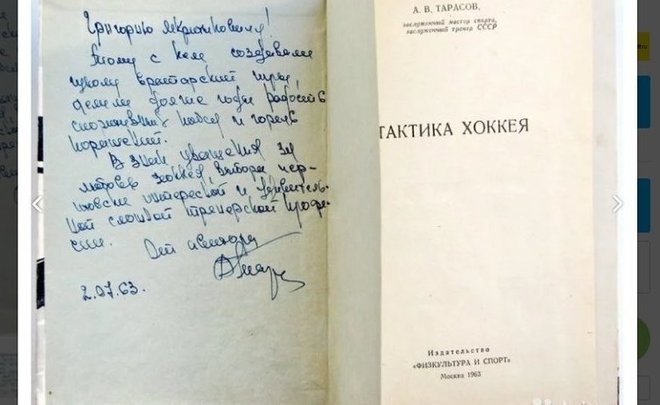 Григорию Мкртычовичу!
Тому с кем создавали
школу вратарский игры,
делили долгие годы радость
спортивных побед и горечь
поражений.
В знак уважения за
любовь хоккея, выбора чер-
товски интересной и удивитель-
ной сложной тренерской профе-
сии. От автора
2.07.63.
А. В. ТАРАСОВ,
заслуженный мастер спорта,
заслуженный тренер СССР
ТАКТИКА ХОККЕЯ
Издательство
«ФИЗКУЛЬТУРА И СПОРТ»
Москва 1963